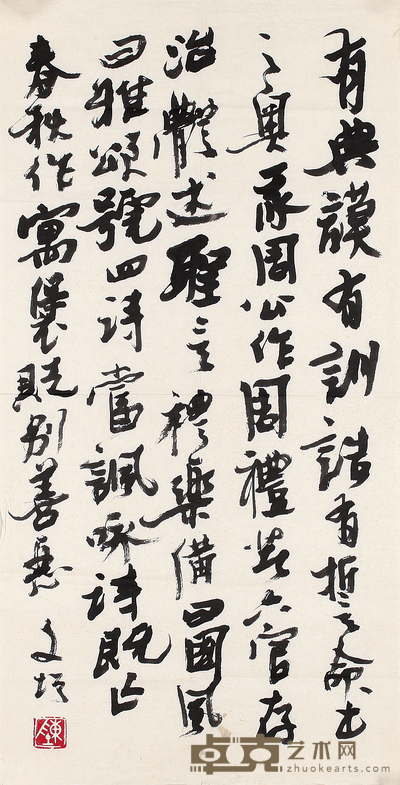 有典謨有訓誥有誓命書
之奧我周公作周禮著六官存
治體述聖言禮樂備曰國風
曰雅頌號四詩當諷咏詩既亡
春秋作寓褒貶別善惡 文
陳
卓克艺术网
www.zhuokearts.com